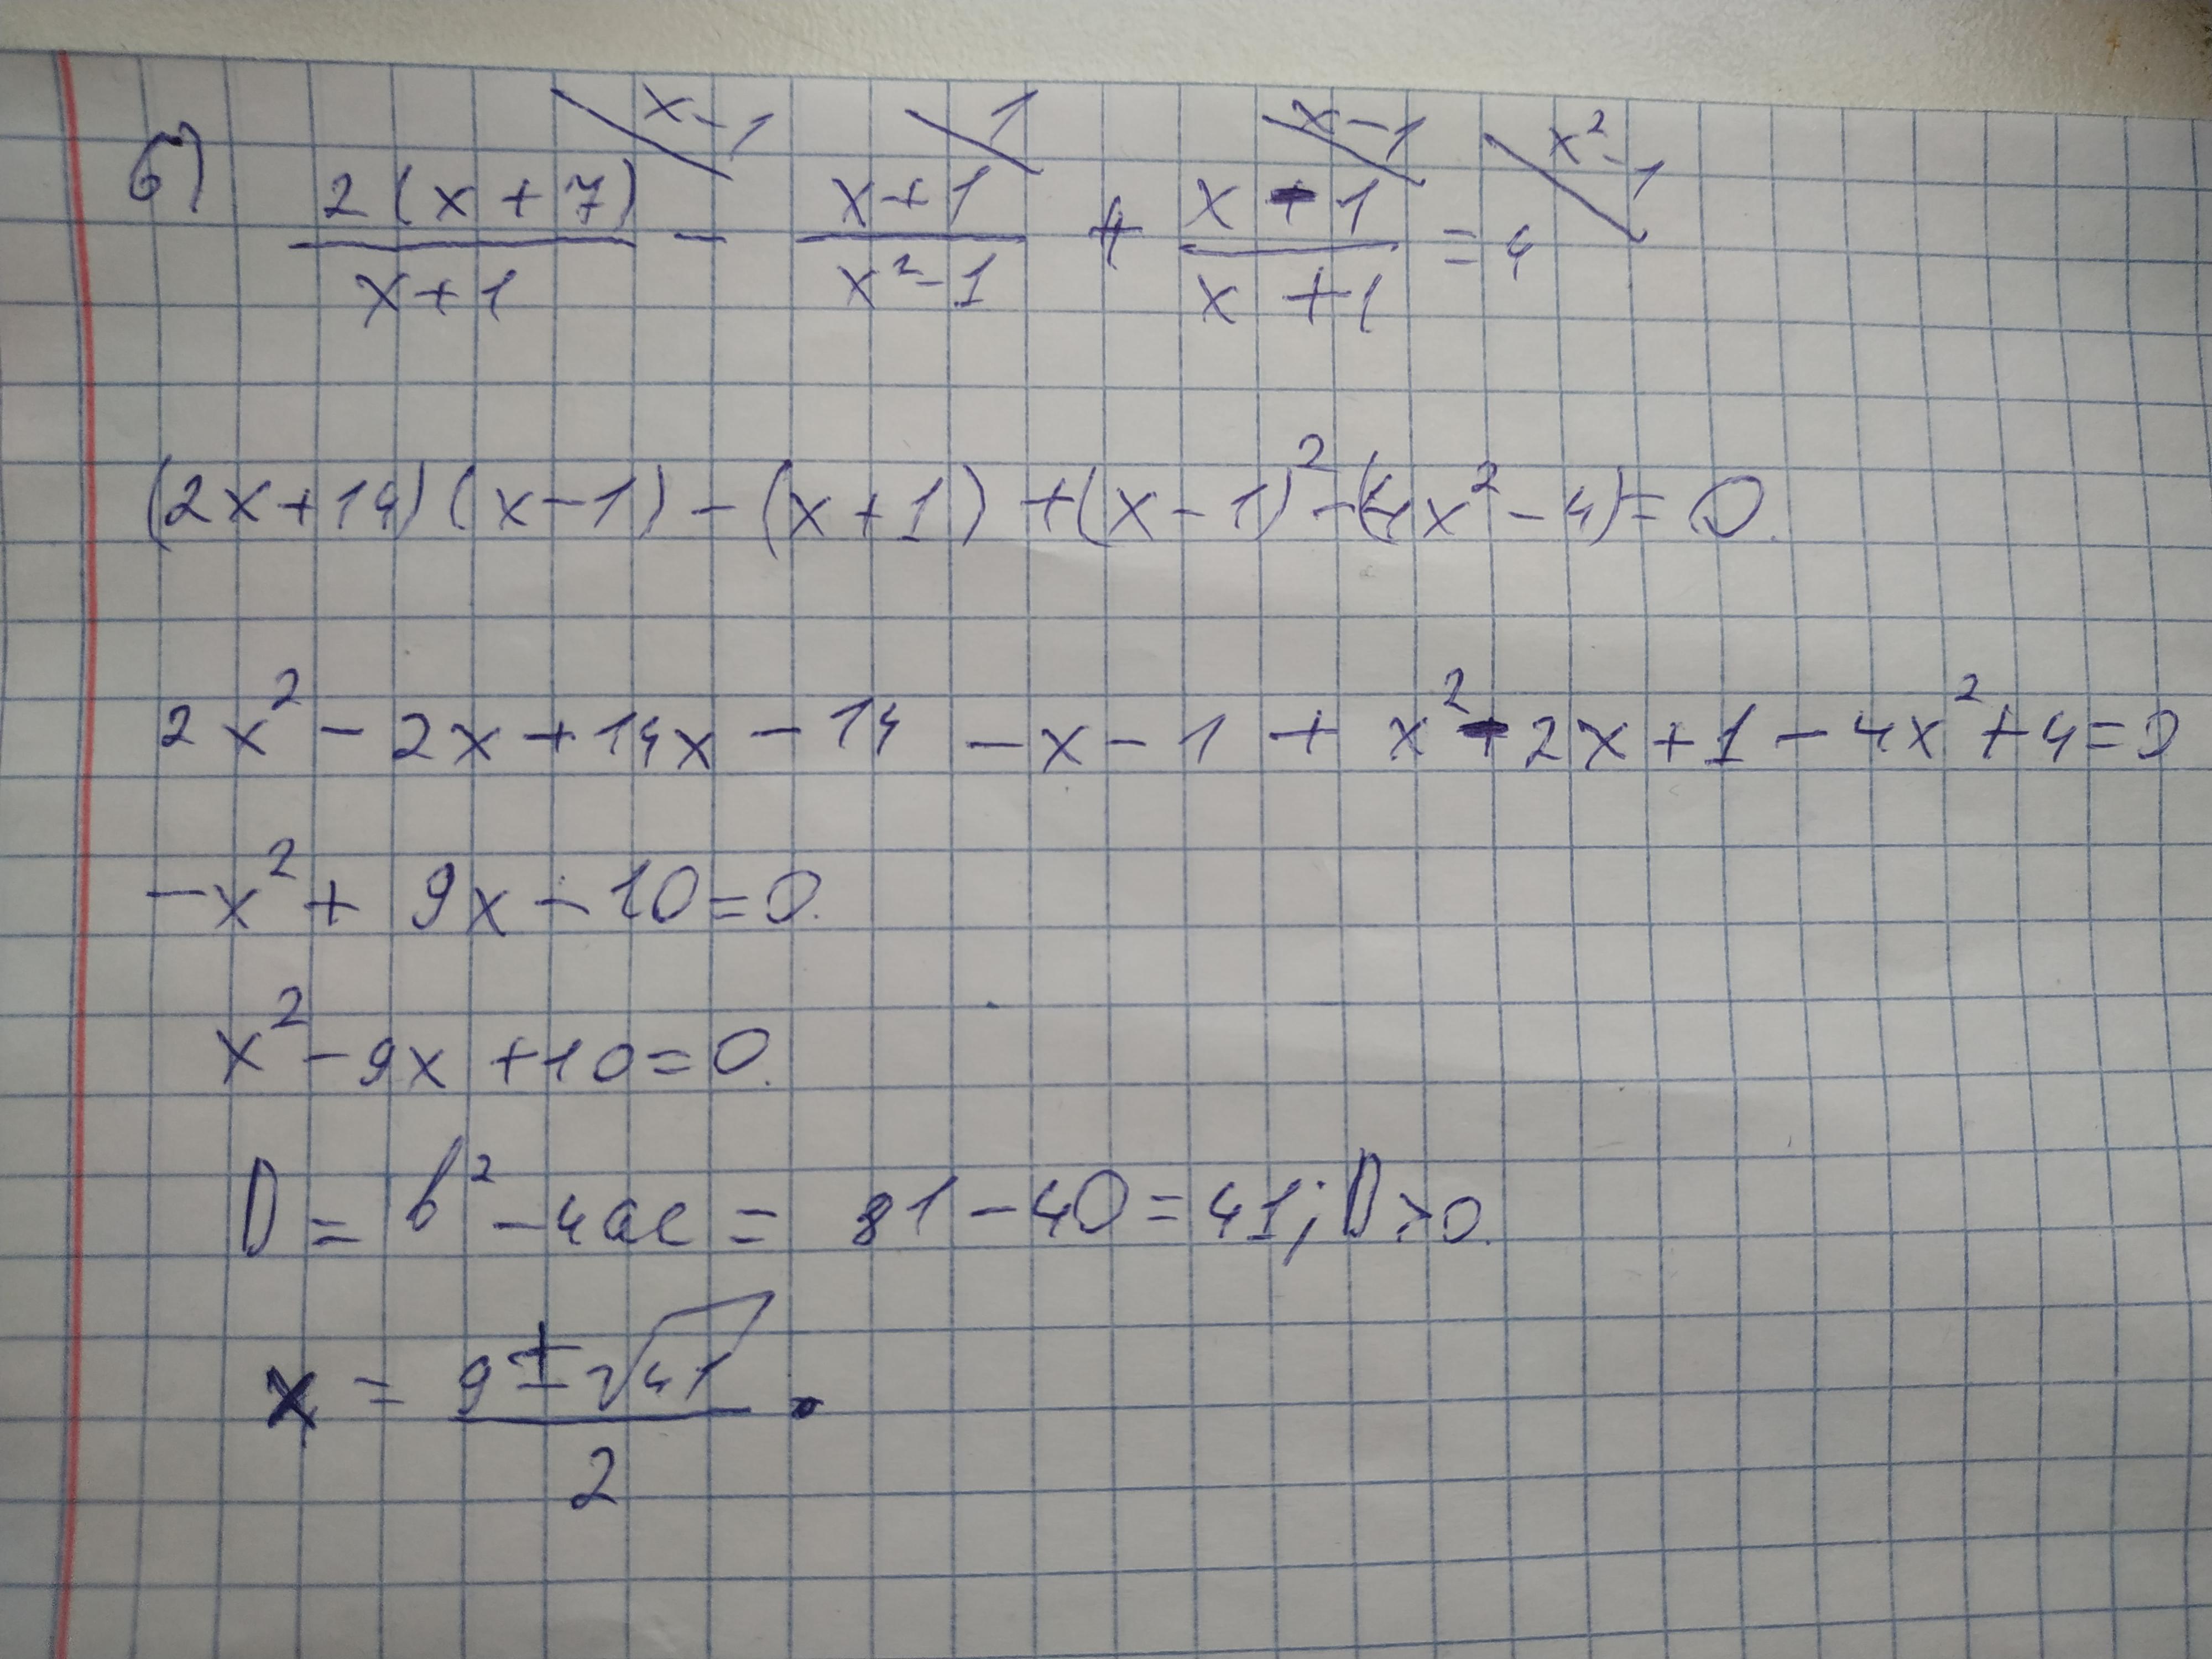 б) 2(x+7)/(x+1) \x-1 - (x+1)/(x²-1) \1 + (x-1)/(x+1) \x-1 = 4 \x²-1
(2x+14)(x-1)-(x+1)+(x-1)²-(4x²-4)=0.
2x²-2x+14x-14-x-1+x²-2x+1-4x²+4=0
-x²+9x-10=0.
x²-9x+10=0.
D=b²-4ac=81-40=41; D>0.
x=(9±√41)/2.